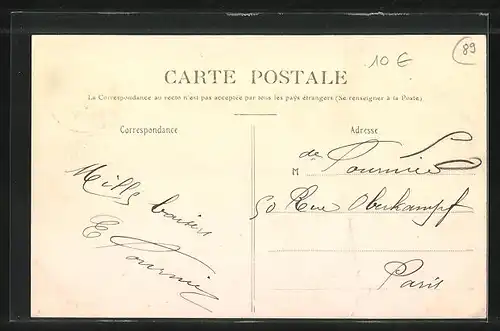 10 €
89
CARTE POSTALE
La Correspondance au recto n'est pas acceptée par tous les pays étrangers (Se renseigner à la Poste)
Correspondance
Adresse
M de Fournier
50 Rue Oberkampf
Paris
Mille baisers
E Fournier